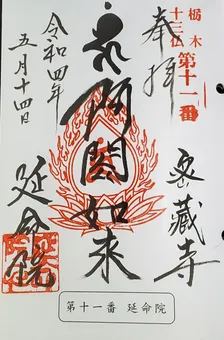 栃木
十三仏
第十一番
奉拝
阿閦如来
密蔵寺
令和四年
五月十四日
延命院
第十一番 延命院